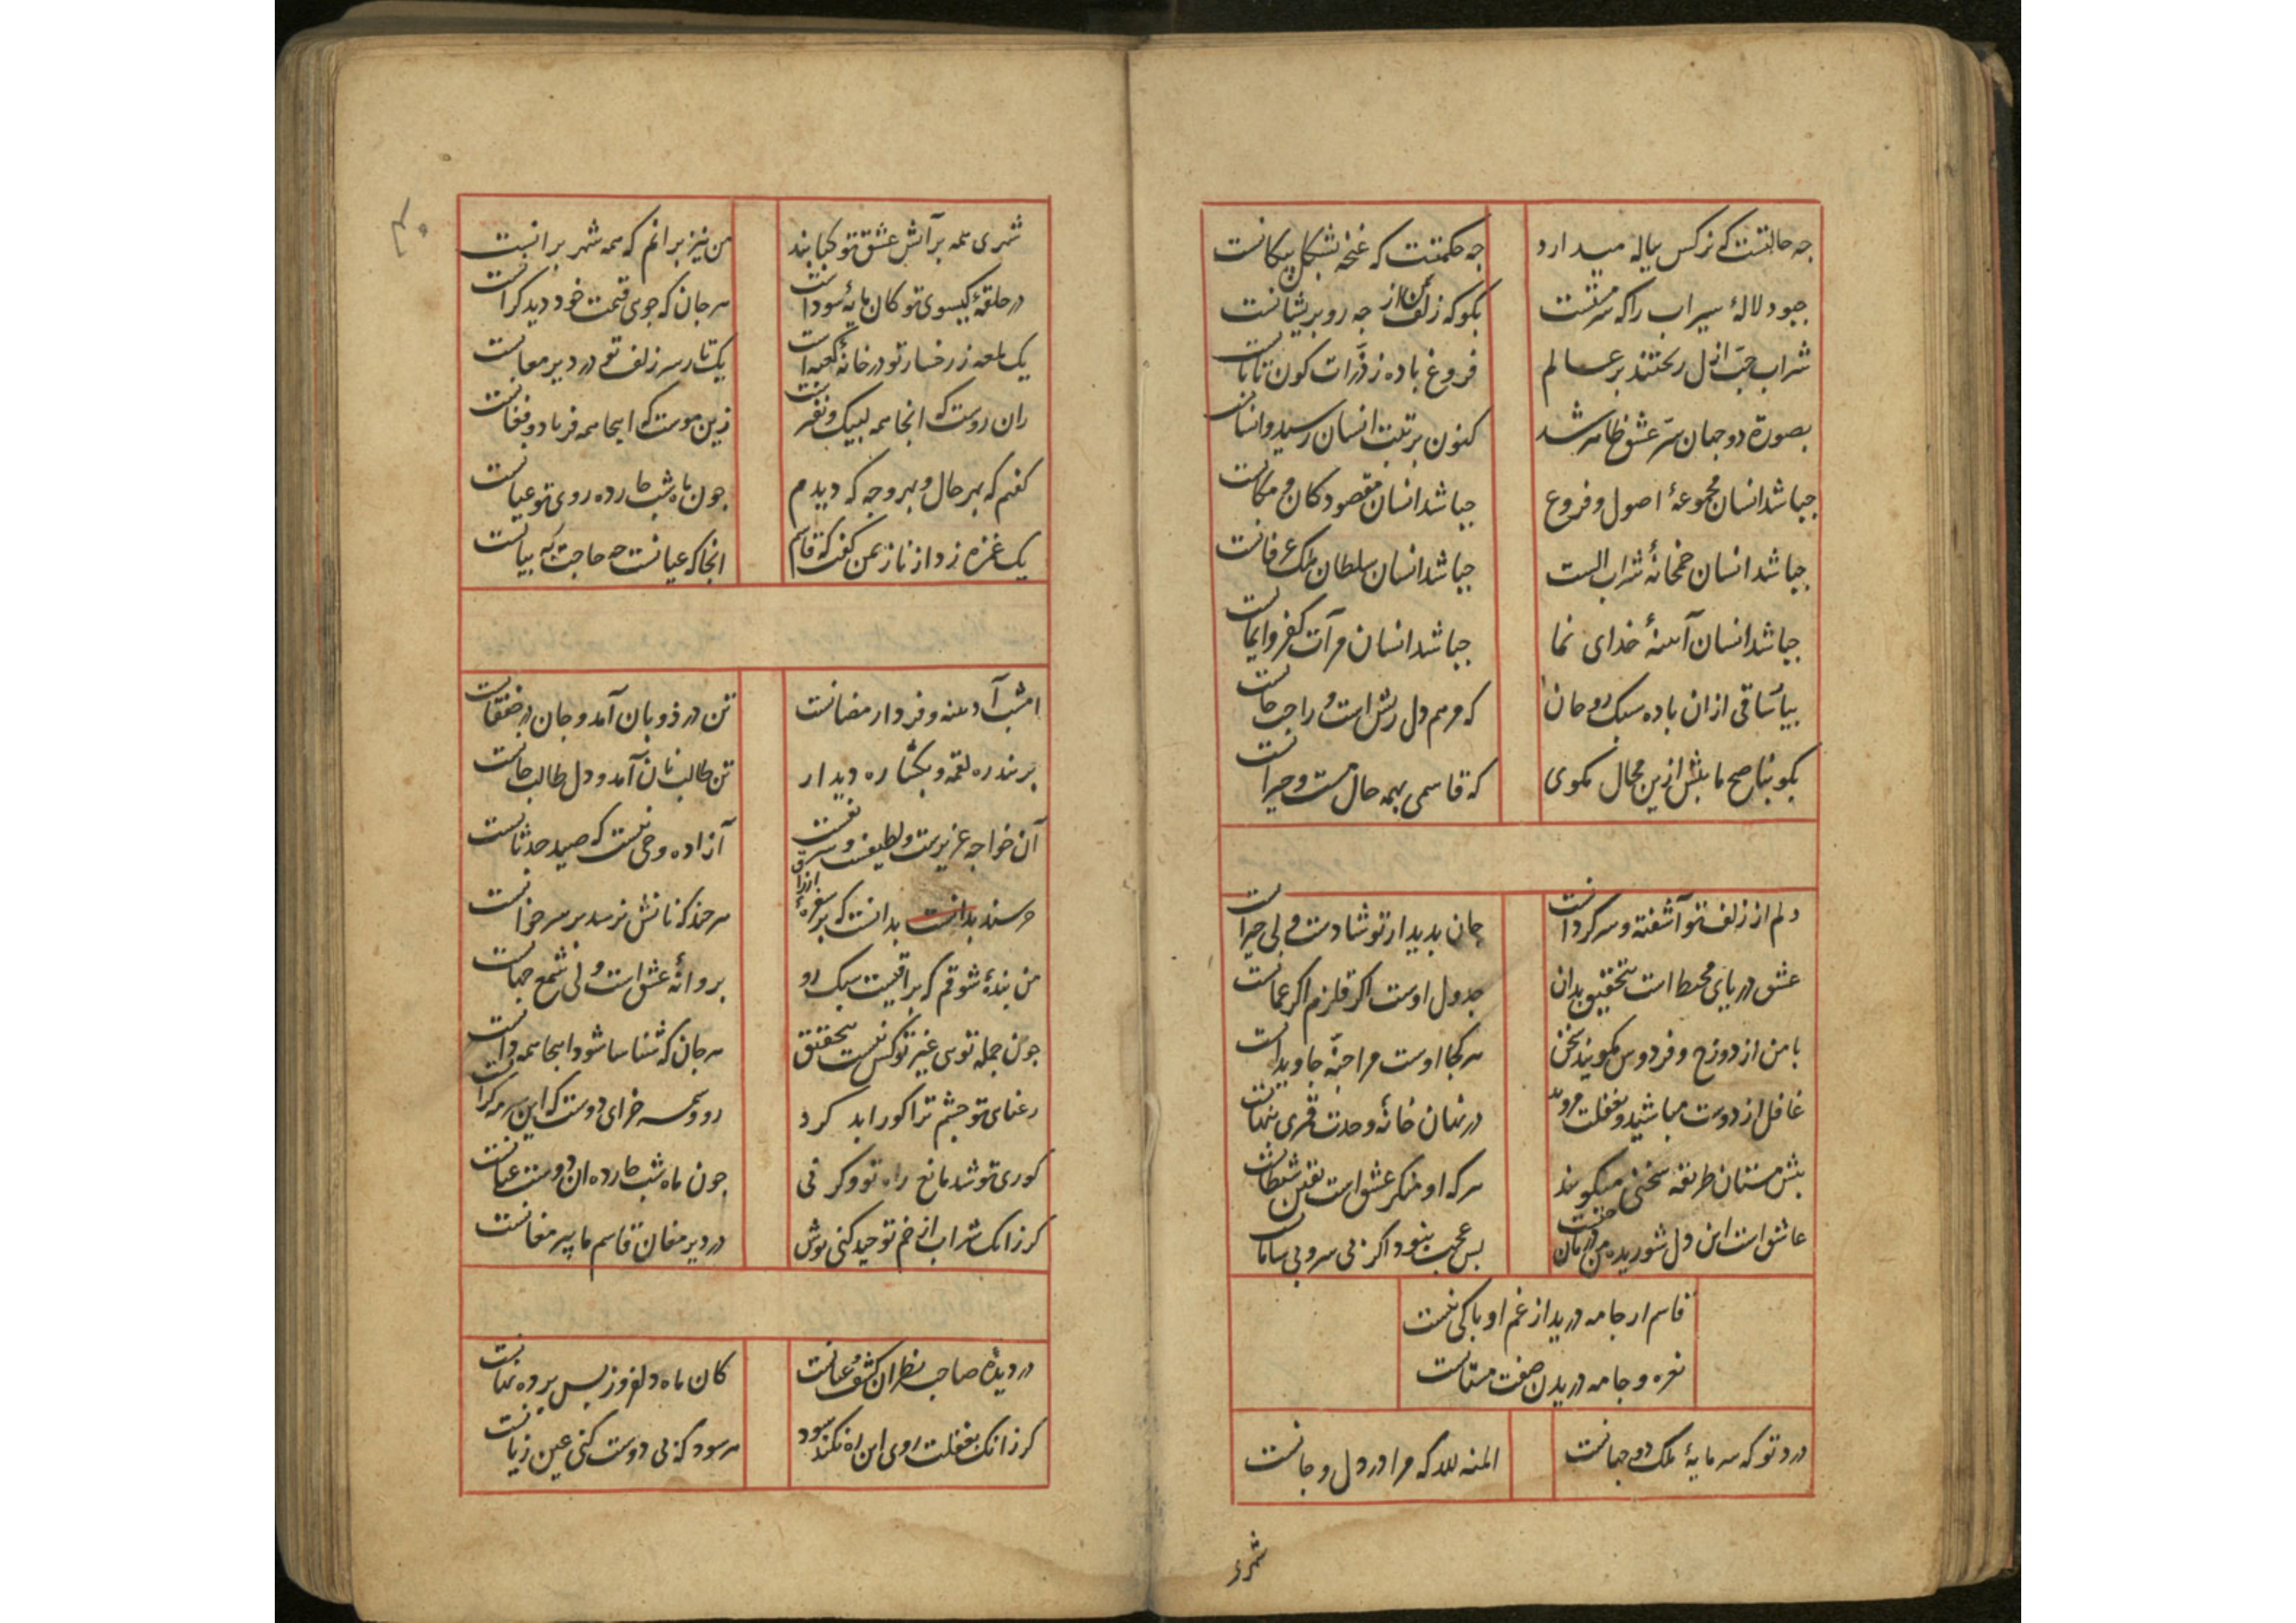 چه حالتست که نرکس پیاله میدارد
چه حکمتست که غنچه بشکل پیکانست
چبود لالهٔ سیراب را که سرمستست
بکو که زلف سمن از چه رو پریشانست
شراب حبّ ازل ریختند بر عالم
فروغ باده ز ذرّات کون تابانست
بصورة دو جهان سرّ عشق ظاهر شد
کنون برتبت انسان رسید و انسانست
چباشد انسان مجموعهٔ اصول و فروع
چباشد انسان مقصود کان و مکانست
چباشد انسان خمخانهٔ شراب الست
چباشد انسان سلطان ملک عرفانست
چباشد انسان آینهٔ خدای نما
چباشد انسان مرآت کفر و ایمانست
بیا ساقی ازان باده سبک روحان
که مرهم دل ریش است و راحت جانست
بکو بناصح ما بیش ازین محال مکوی
که قاسمی بهمه حال مست و حیرانست
دلم از زلف تو آشفته و سرکردانست
جان بدیدار تو شادست ولی حیرانست
عشق دریای محیط است بتحقیق بدان
جدول اوست اکر قلزم اکر عمانست
با من از دوزخ و فردوس مکویید سخن
هر کجا اوست مرا جنّه جاویدانست
غافل از دوست مباشید و بغفلت مروید
در نهان خانهٔ وحدت قمری پنهانست
پیش مستان طریقه سخنی میکویند
هر که او منکر عشق است یقین شیطانست
عاشق است این دل شوریدهٔ من درمان چیست
بس عجب نبود اکر بی سر و بی سامانست
قاسم ار جامه درید از غم او باکی نیست
نعره و جامه دریدن صفت مستانست
درد تو که سرمایهٔ ملک دو جهانست
المنه لله که مرا در دل و جانست
شهری
۳۰
شهری همه بر آتش عشق تو کبابند
من نیز برانم که همه شهر برانست
در حلقهٔ کیسوی تو کان مایهٔ سوداست
هر جان که جوی قیمت خود دید کرانست
یک لمعه ز رخسار تو در خانهٔ کعبه است
یک تار سر زلف تو در دیر مغانست
زان روست که انجا همه لبیک و نفیرست
زین موست که اینجا همه فریاد و فغانست
کفتم که بهر حال و بهر وجه که دیدم
چون ماه شب چارده روی تو عیانست
یک غمزه زد از ناز بمن کفت که قاسم
انجا که عیانست چه حاجت به بیانست
امشب آدینه و فردا رمضانست
تن در ذوبان آمد و جان در خفقانست
بربند ره لقمه و بکشا ره دیدار
تن طالب نان آمد و دل طالب جانست
آن خواجه عزیزست و لطیفست و شریفست
آزاده و حی نیست که صید حدثانست
خرسند بدانست که بر سفرهٔ ارزاق
هر چند که نانش نرسد بر سر خوانست
من بندهٔ شوقم که براقیست سبک رو
پروانهٔ عشق است ولی شمع جهانست
چون جمله تویی غیر تو کس نیست بتحقیق
هر جان که شناسا شود اینجا همه دانست
رعنایی تو چشم ترا کور ابد کرد
رو وسمه خرای دوست که این سرمه کرانست
کوری تو شد مانع راه تو وکر نی
چون ماه شب چارده ان دوست عیانست
کر زانک شراب از خم توحید کنی نوش
در دیر مغان قاسم ما پیر مغانست
در دیدهٔ صاحب نظران کشف و عیانست
کان ماه دلفروز پس پرده نهانست
کر زانک بغفلت روی این راه نکند سود
هر سود که بی دوست کنی عین زیانست